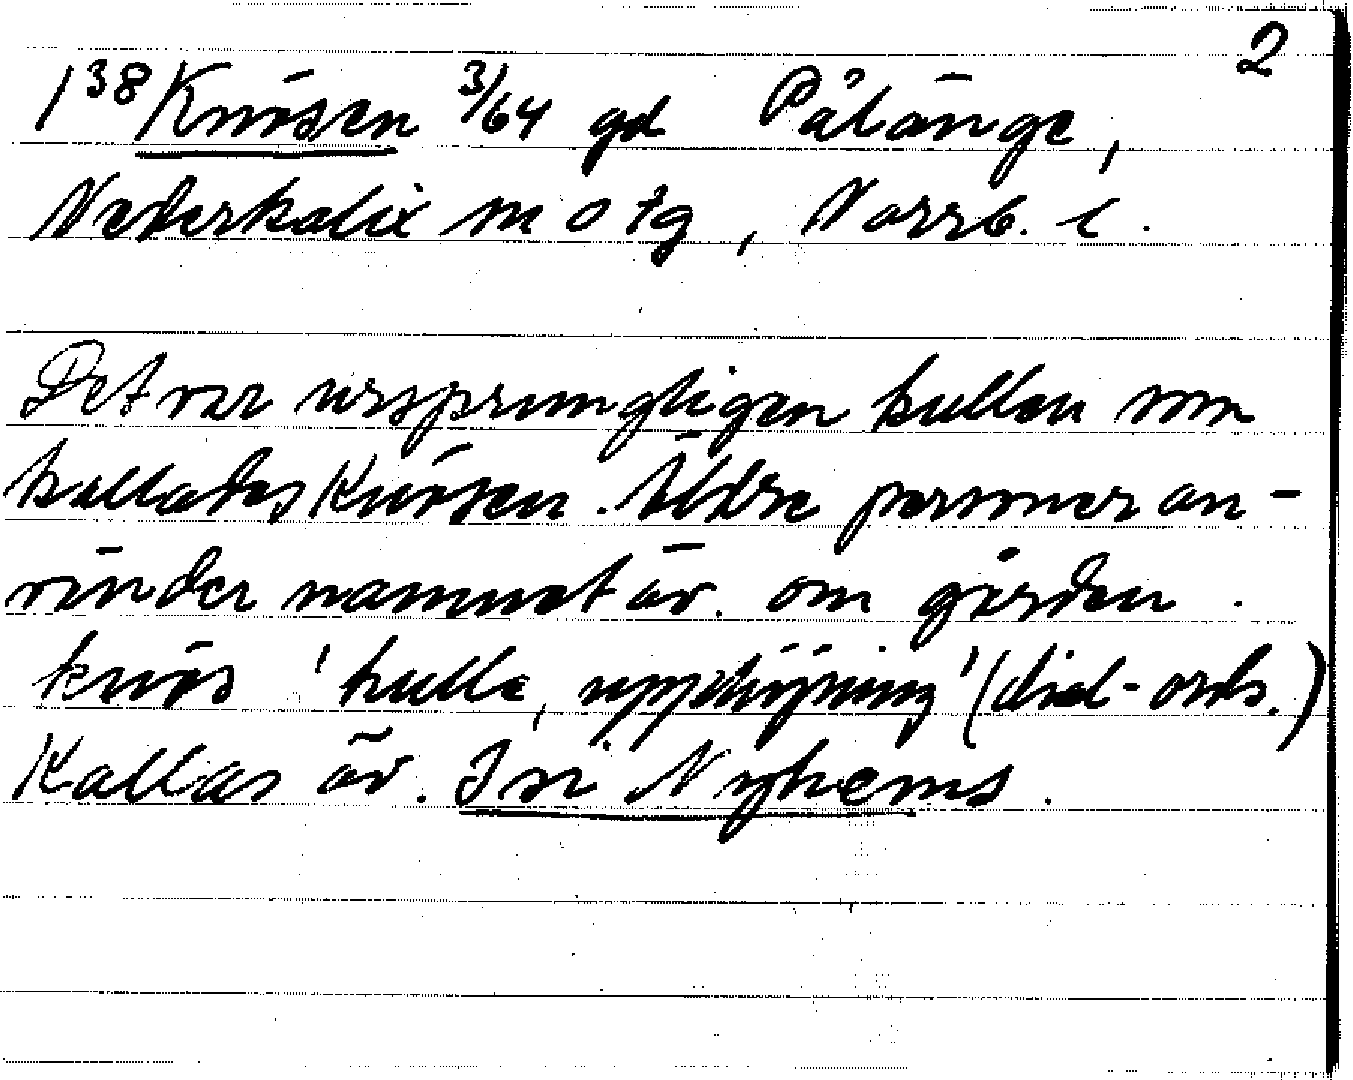 2
1³⁸ Knösen 3/64 gd Pålänge,
Nederkalix sn o tg, Norrb. l.
Det var ursprungligen kullen som
kallades Knösen. Äldre personer an-
vänder namnet äv. om gården.
knös 'kulle, upphöjning' (dial-ordb.)
Kallas äv. Nyhems.